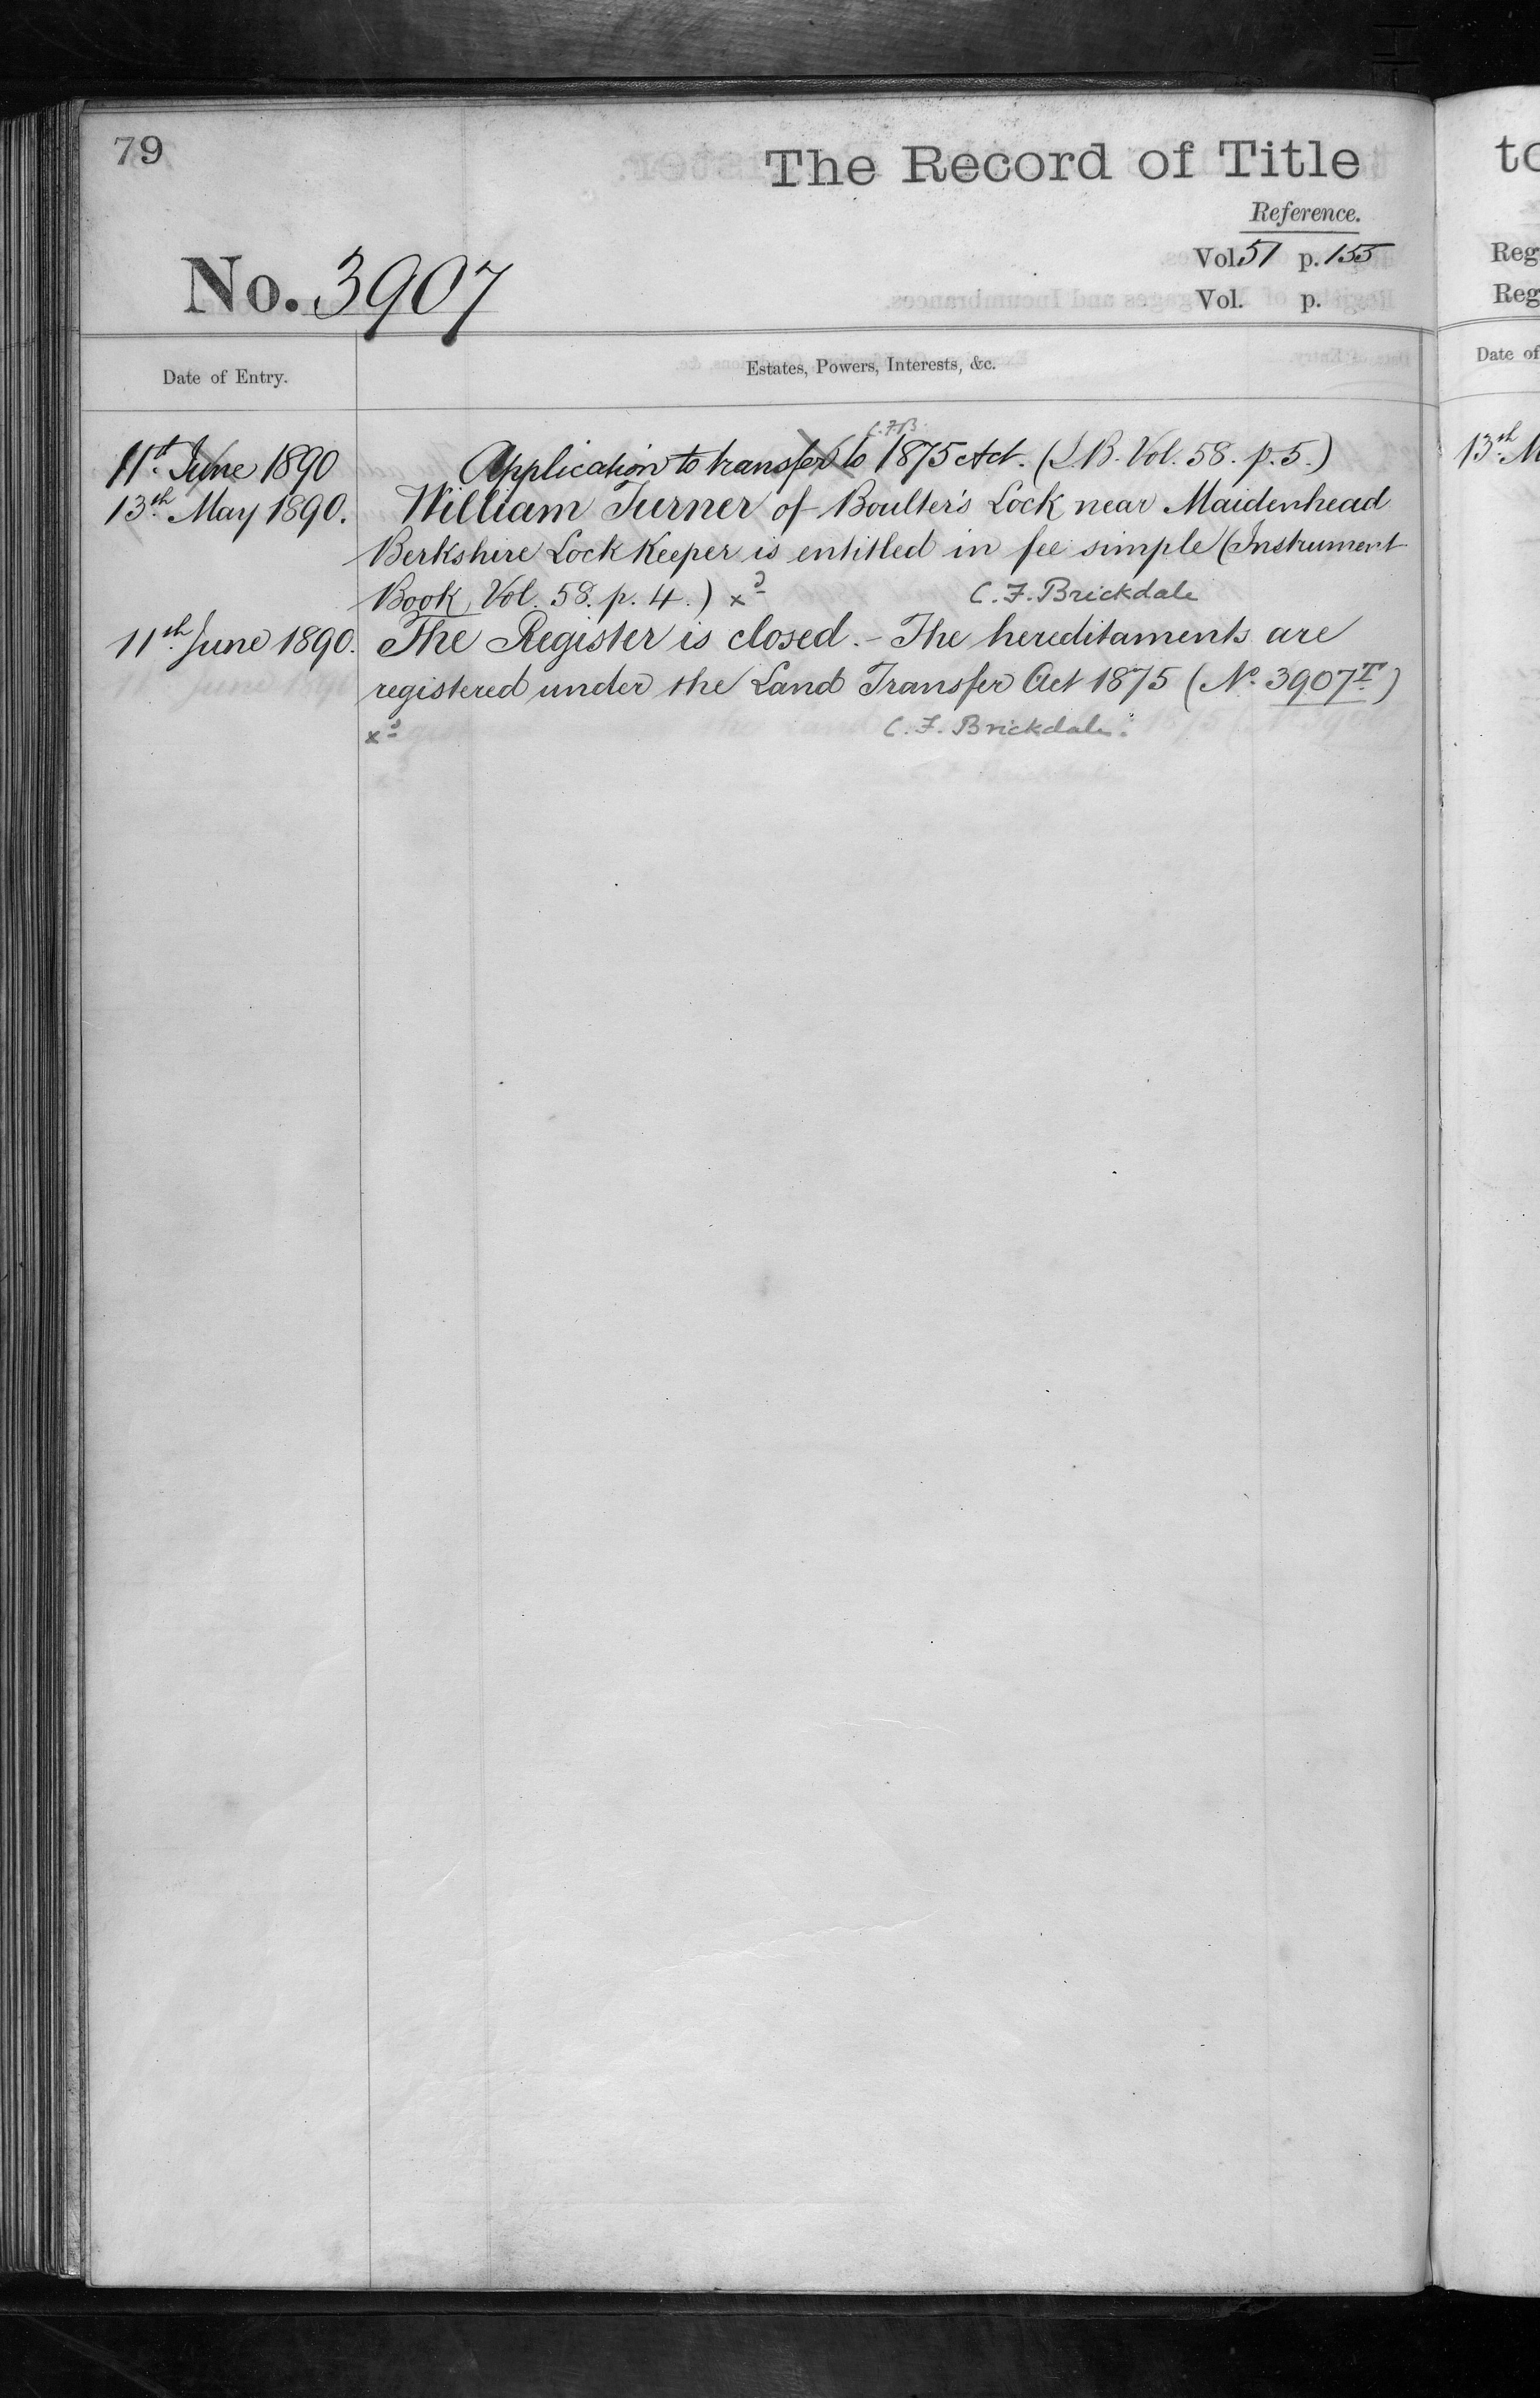 79
The Record of Title
Reference.
Vol. 51 p. 155
No. 3907
Vol. p.
Date of Entry.
Estates, Powers, Interests, &c.
C.F.B.
11th June 1890 Application to transfer to 1875 Act. (I.B. Vol. 58. p. 5.)
13th May 1890. William Turner of Boulter's Lock near Maidenhead
Berkshire Lock Keeper is entitled in fee simple (Instrument
Book Vol. 58. p. 4.) xd C. F. Brickdale
11th June 1890. The Register is closed. - The hereditaments are
registered under the Land Transfer Act 1875 (No. 3907T)
xd C. F. Brickdale.
to
Reg
Reg
Date of
13th M